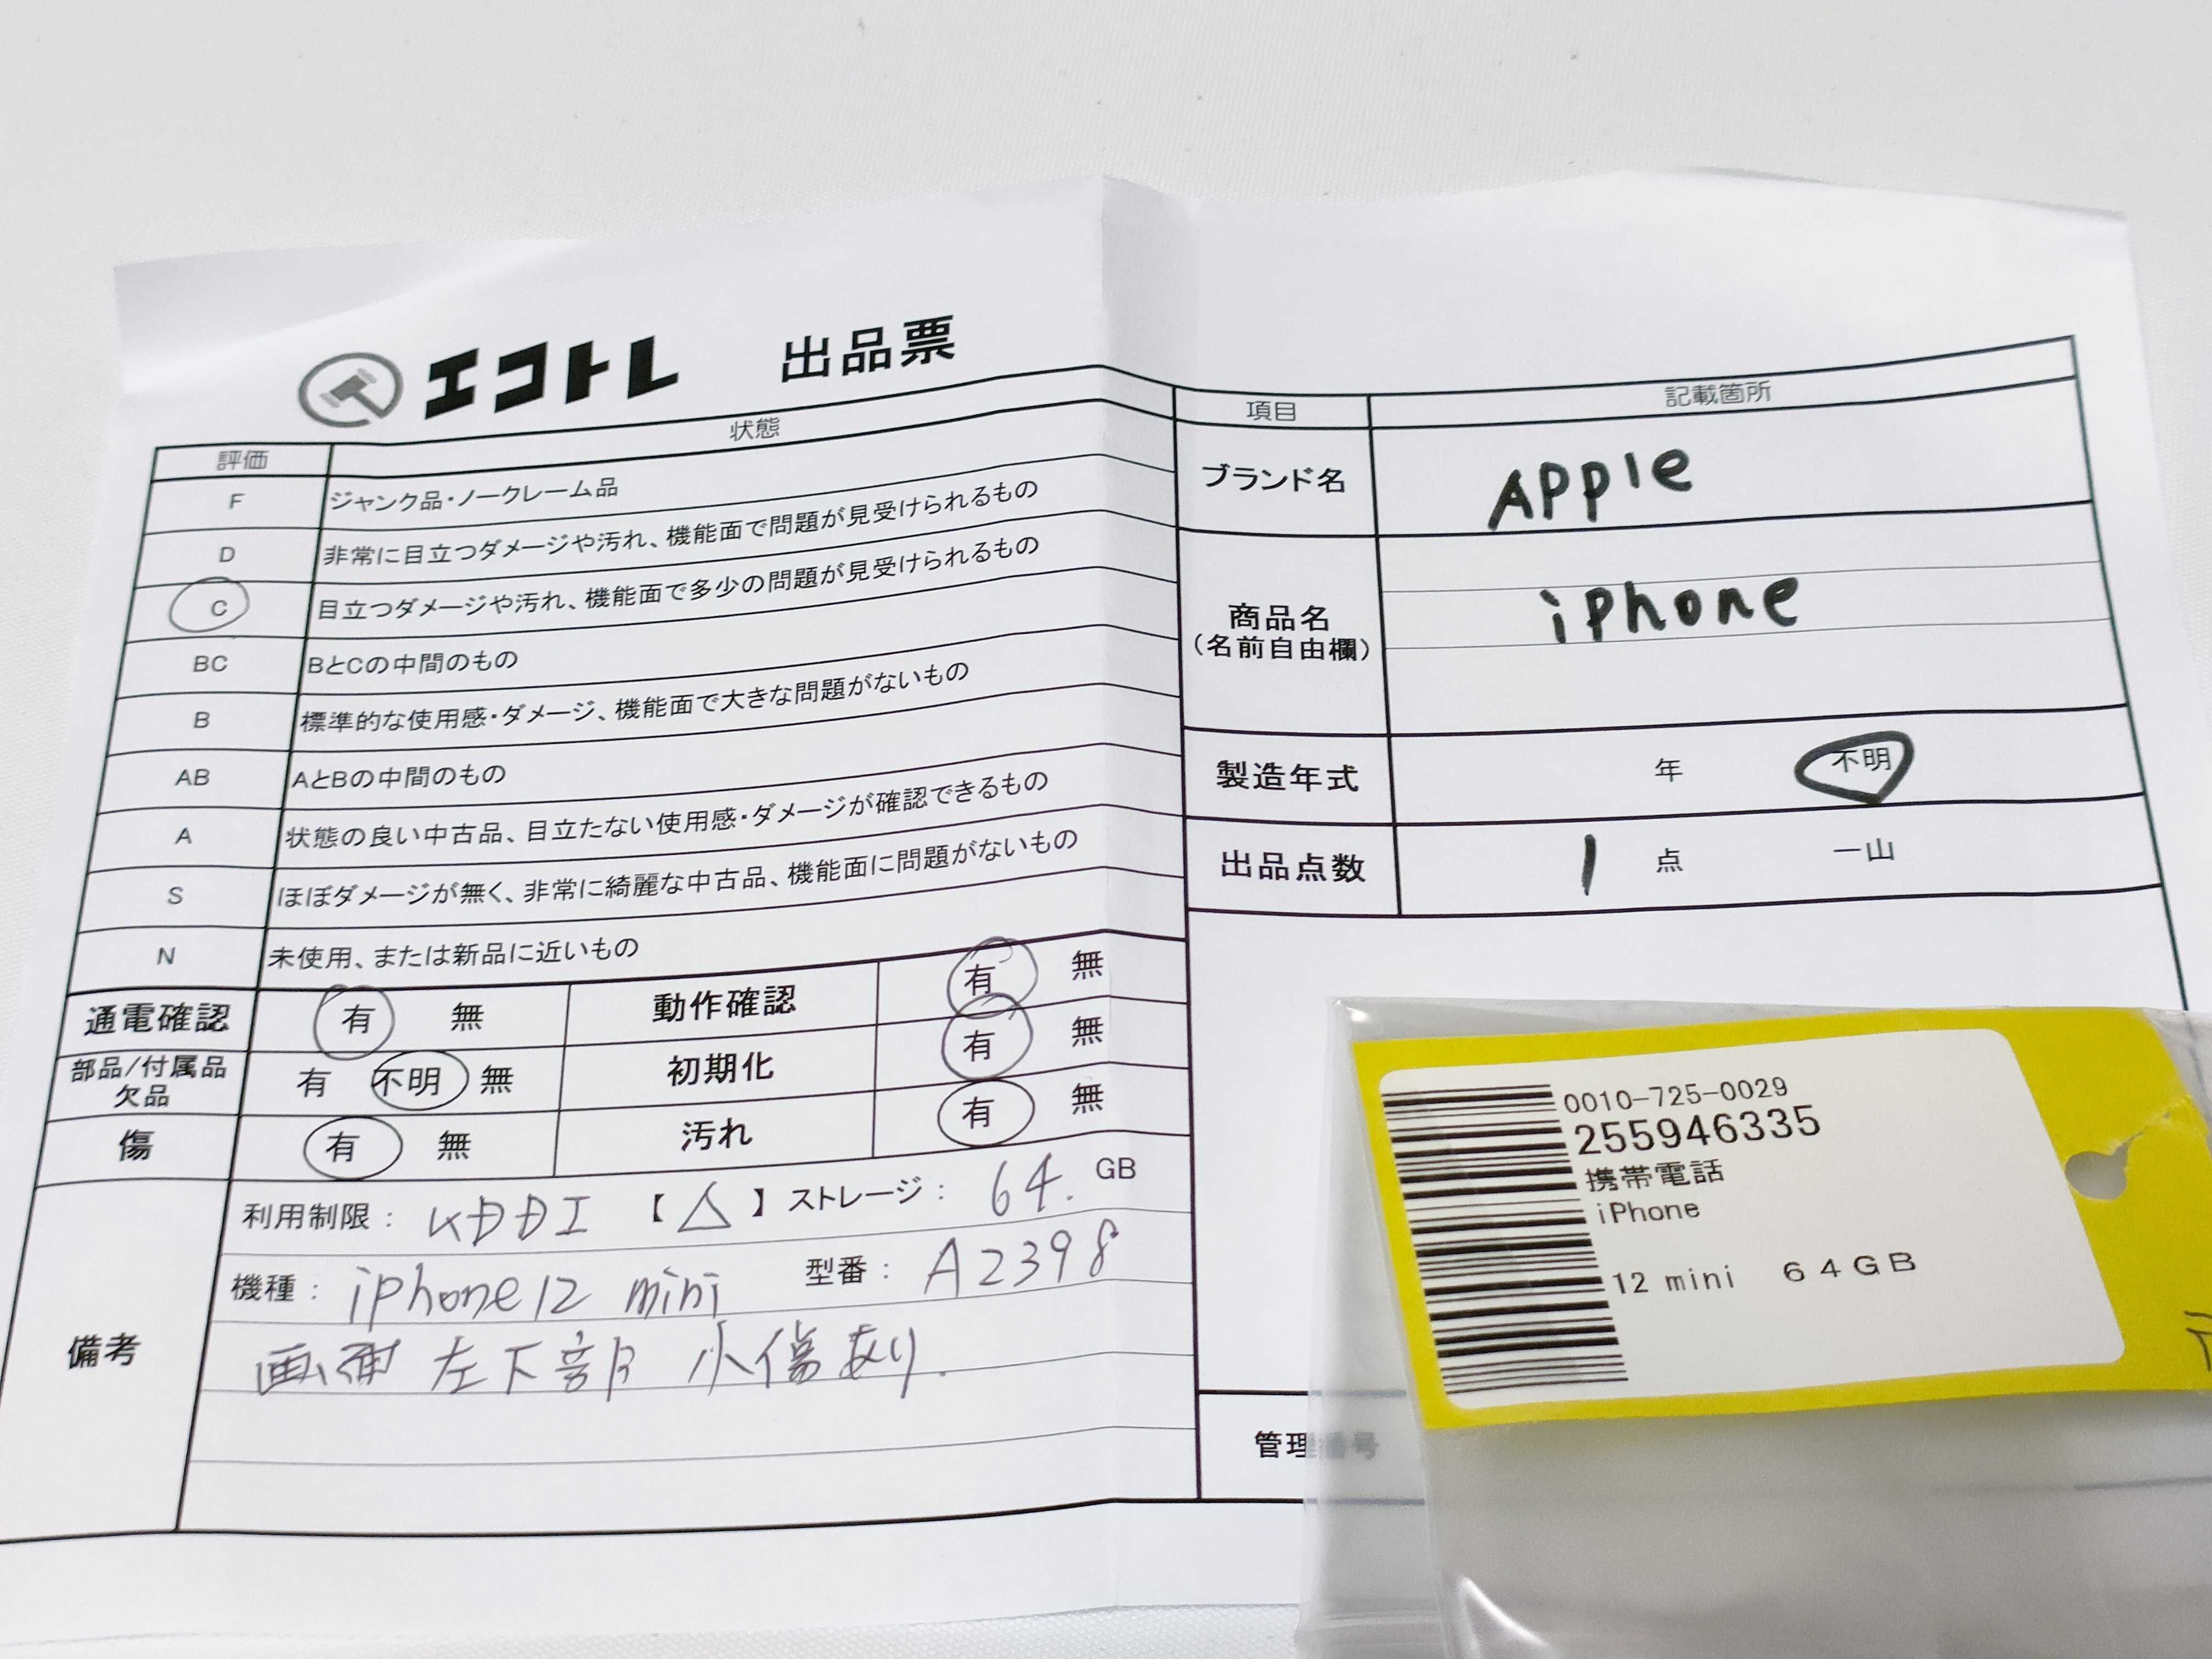 エコトレ 出品票
評価 状態
F ジャンク品・ノークレーム品
D 非常に目立つダメージや汚れ、機能面で問題が見受けられるもの
C 目立つダメージや汚れ、機能面で多少の問題が見受けられるもの
BC BとCの中間のもの
B 標準的な使用感・ダメージ、機能面で大きな問題がないもの
AB AとBの中間のもの
A 状態の良い中古品、目立たない使用感・ダメージが確認できるもの
S ほぼダメージが無く、非常に綺麗な中古品、機能面に問題がないもの
N 未使用、または新品に近いもの
通電確認 有 無 動作確認 有 無
部品/付属品 欠品 有 不明 無 初期化 有 無
傷 有 無 汚れ 有 無
備考
利用制限: KDDI 【△】 ストレージ: 64. GB
機種: iphone12 mini 型番: A2398
画面 左下部 小傷あり.
項目 記載箇所
ブランド名 APPle
商品名
(名前自由欄) iPhone
製造年式 年 不明
出品点数 1 点 一山
管理番号
0010-725-0029
255946335
携帯電話
iPhone
12 mini 64GB